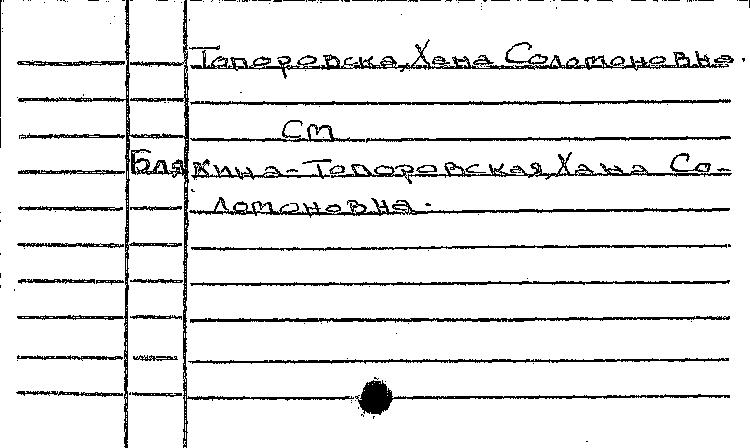 Топоровска, Хана Соломоновна.
Ст
Блякина-Топоровская, Хана Со-
ломоновна.